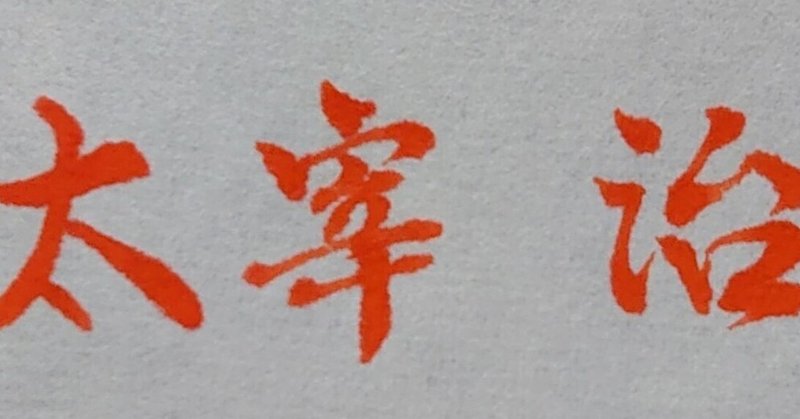 太宰 治